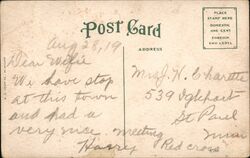 Post Card
PLACE
STAMP HERE
DOMESTIC
ONE CENT
FOREIGN
TWO CENTS
ADDRESS
Aug 28, 19
Dear Wife
We have stop
at this town
and had a
very nice meeting
Harry
Mrs J. H. Charette
539 Iglehart
St Paul
Minn
Red cross